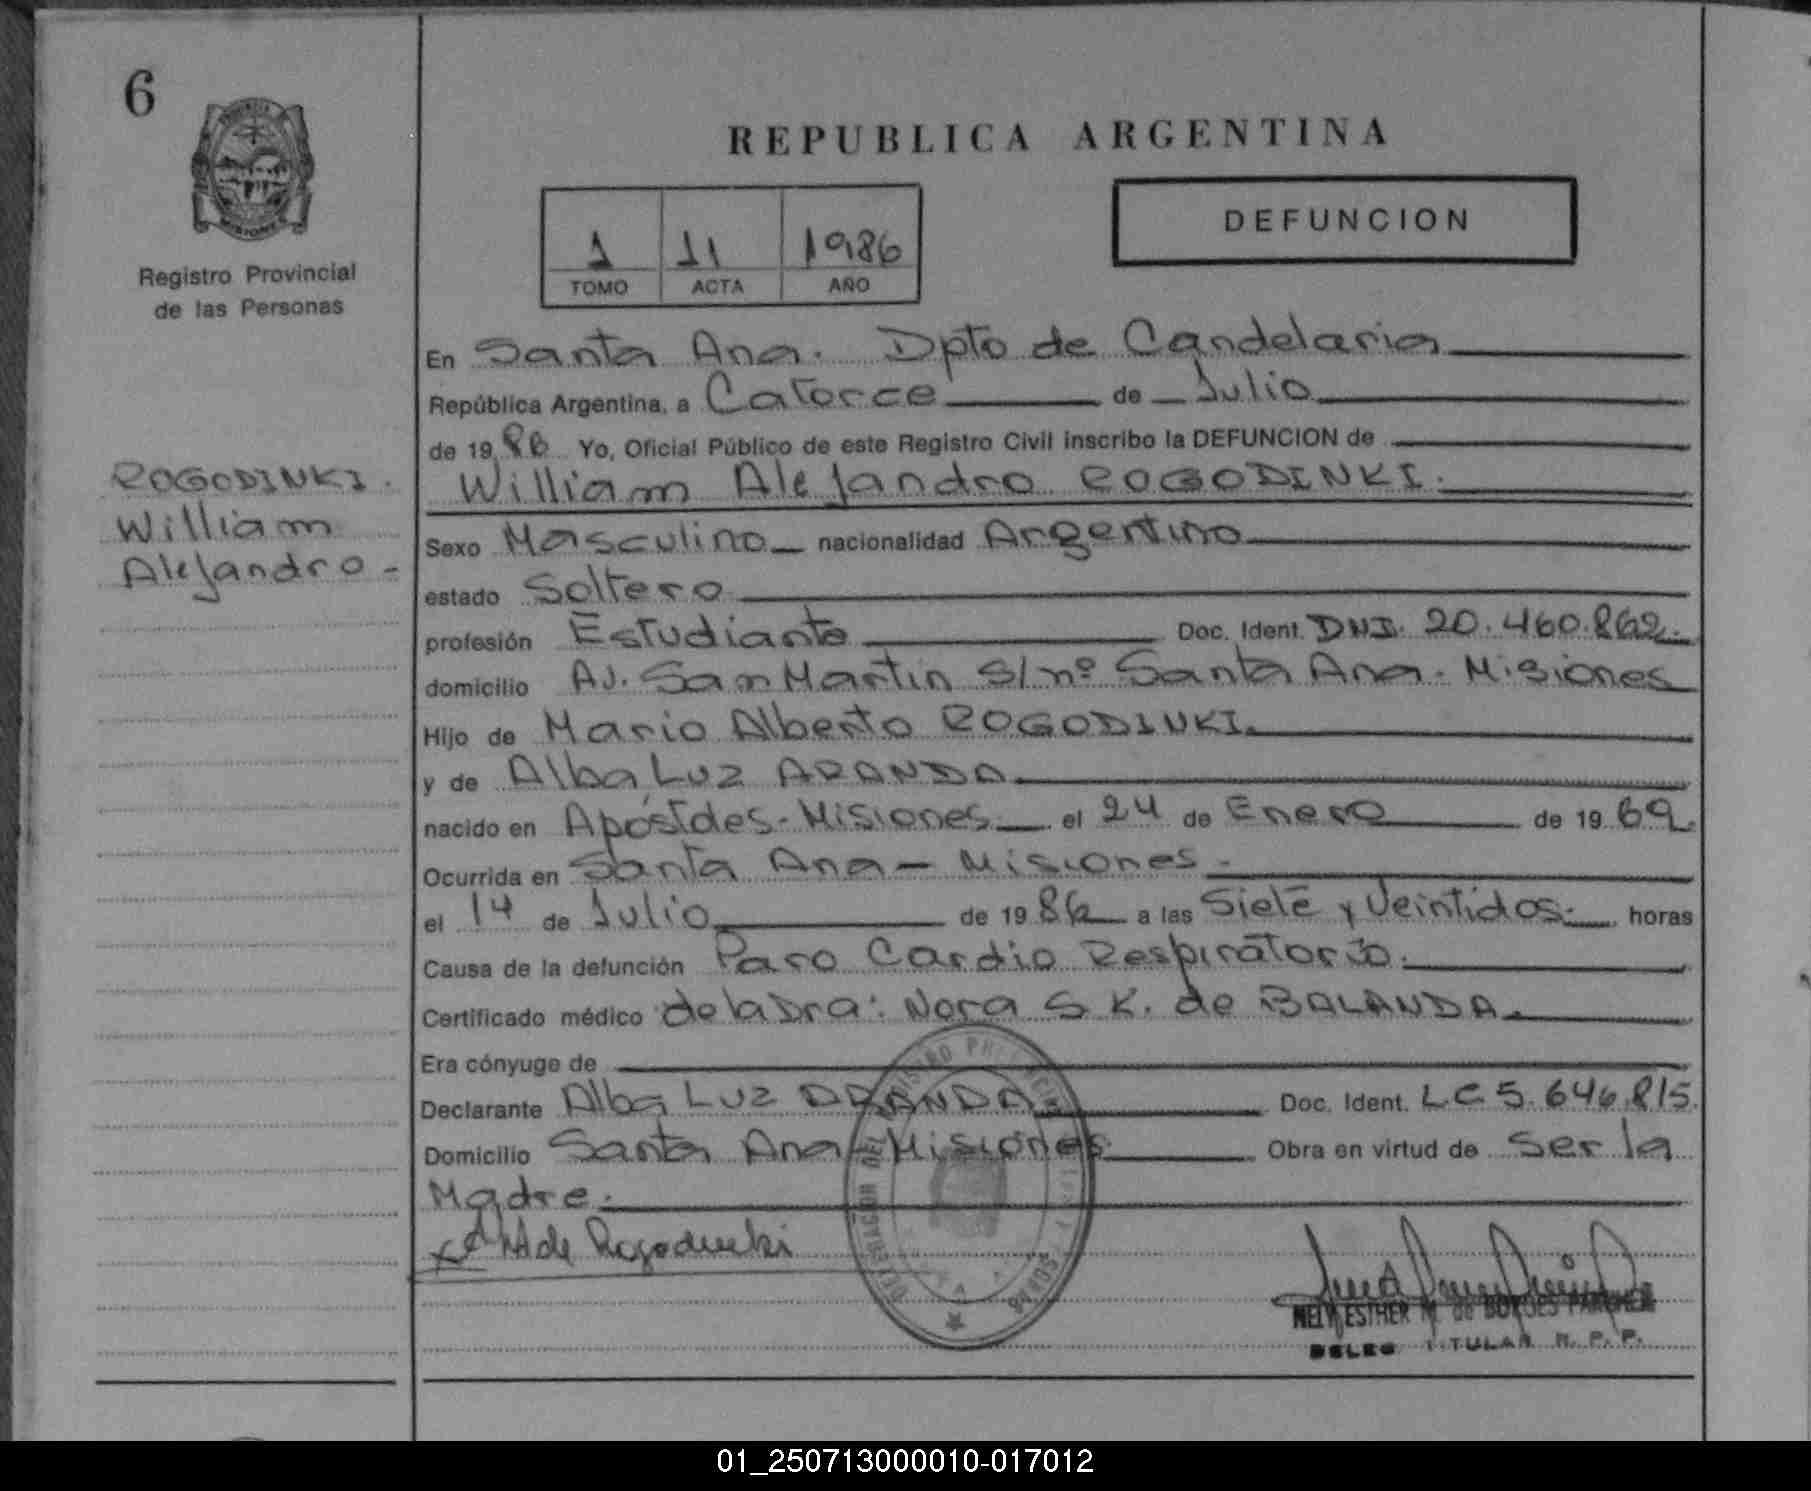 6
Registro Provincial
de las Personas
ROGODINKI.
William
Alejandro-
REPUBLICA ARGENTINA
DEFUNCION
1 11 1986
TOMO ACTA AÑO
En Santa Ana. Dpto de Candelaria
República Argentina, a Catorce de Julio
de 1986 Yo, Oficial Público de este Registro Civil inscribo la DEFUNCION de
William Alejandro ROGODINKI.
Sexo Masculino nacionalidad Argentino
estado Soltero
profesión Estudiante Doc. Ident. DNI. 20.460.862.
domicilio Av. San Martin S/nº Santa Ana. Misiones
Hijo de Mario Alberto ROGODINKI.
y de Alba Luz ARANDA
nacido en Apóstoles-Misiones el 24 de Enero de 1969.
Ocurrida en Santa Ana - Misiones-
el 14 de Julio de 1986 a las Siete y Veintidos horas
Causa de la defunción Paro Cardio Respiratorio.
Certificado médico de la Dra: Nora S K. de BALANDA.
Era cónyuge de
Declarante Alba Luz ARANDA Doc. Ident. LC 5.646.815.
Domicilio Santa Ana-Misiones Obra en virtud de Ser la
Madre.
de Rogodinki
DELEGACION DEL REGISTRO
NELY ESTHER M. de
DELEG TITULAR R. P. P.
01_250713000010-017012